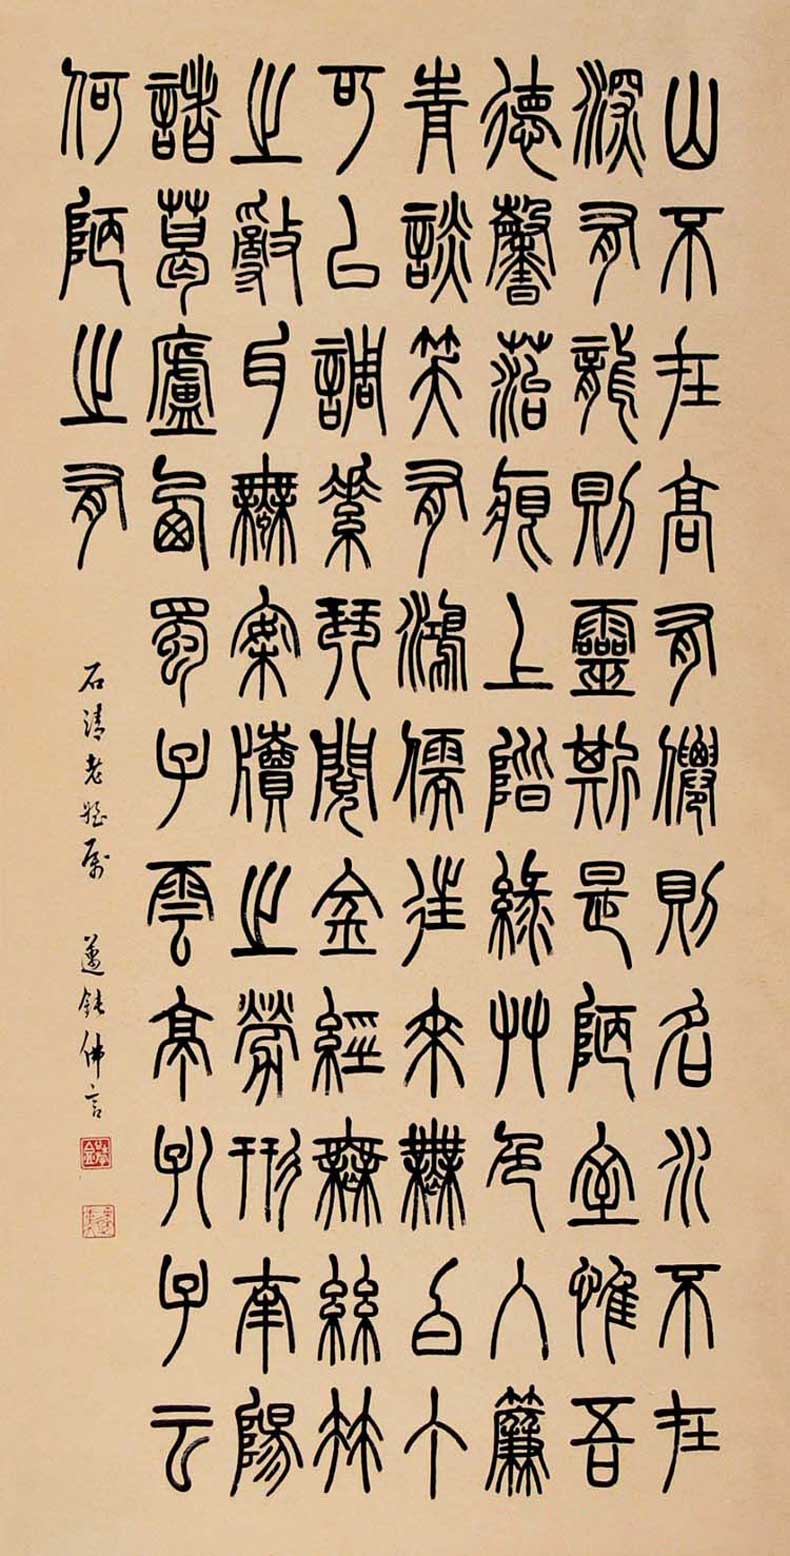 山不在高有僊則名水不在
深有龍則靈斯是陋室惟吾
德馨菭痕上階綠艸色入簾
青談笑有鴻儒往來無白丁
可以調素琴閱金經無絲竹
之亂耳無案牘之勞形南陽
諸葛廬西蜀子雲亭孔子云
何陋之有
石清老屬 邁鈍佛言